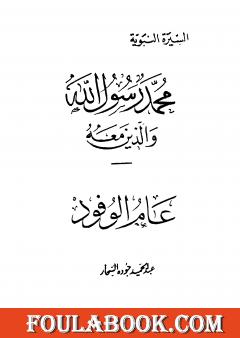 السيرة النبوية
محمد رسول الله
والذين معه
عام الوفود
عبد الحميد جوده السحار
FOULABOOK.COM